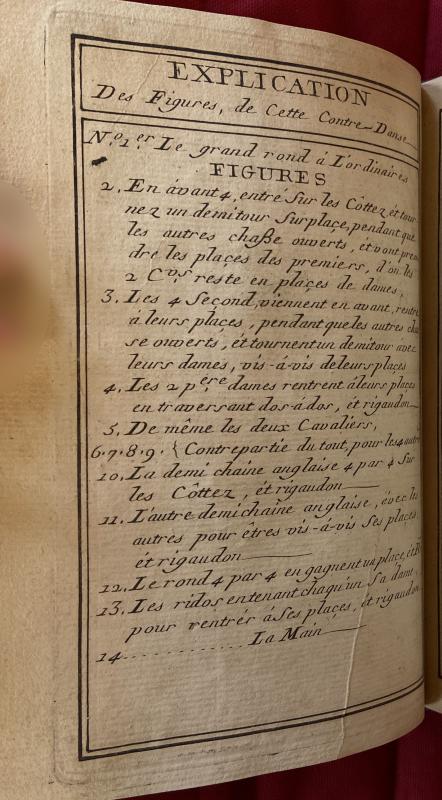 EXPLICATION
Des Figures, de Cette Contre-Danse
N.º 1.er Le grand rond á L'ordinaires
FIGURES
2. En ávant 4, entré Sur les Côttez, ét tour
nez un demi tour Sur plaçe, pendant que
les autres chaße ouverts, ét vont pren
dre les plaçes des premiers, d'on les
2 C.vs reste en plaçes de dames,
3. Les 4 Second, viennent en avant, rentre
á leurs plaçes, pendant que les autres cha
se ouverts, ét tournent un demi tour avec
leurs dames, vis-á-vis de leurs plaçes
4. Les 2 p.ere dames rentrent á leurs plaçes
en traversant dos-á-dos, ét rigaudon
5. De même les deux Cavaliers,
6.7.8.9. { Contrepartie du tout, pour les 4 autre
10. La demi chaine anglaise 4 par 4 Sur
les Côttez, ét rigaudon
11. L'autre demi chaine anglaise, évec les
autres pour êtres vis-á-vis Ses plaçes
ét rigaudon
12. Le rond 4 par 4 en gagnent un plaçe, ét
13. Les ridos en tenant chaqu'un Sa dame,
pour rentrér á Ses plaçes, ét rigaudon
14 ............ La Main